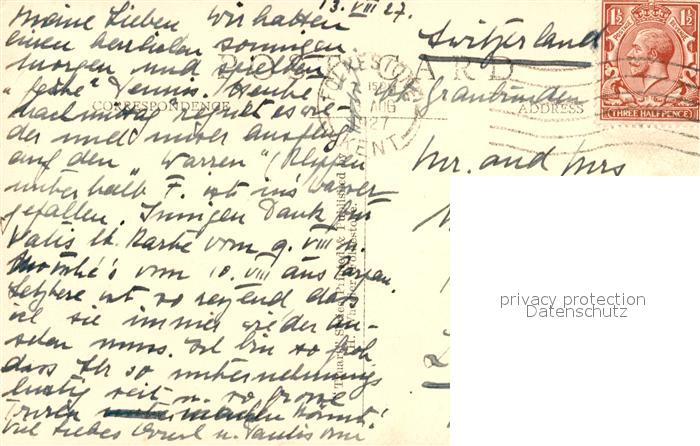 13. VIII 27.
Meine Lieben Wir hatten
einen herrlichen sonnigen
morgen und spielten
Tennis. Heute
nachmittag regnet es wie-
der und unser Ausflug
auf den "Warren" (Klippen
unterhalb F. ist ins Wasser
gefallen. Innigen Dank für
Vatis lb. Karte vom 9. VIII u.
vom 10. VIII aus
Letztere ist so reizend dass
ich sie immer wieder an-
sehen muss. Ich bin so froh
dass Ihr so unternehmungs
lustig seit u. so grosse
Touren machen könnt!
viel liebes
POST CARD
CORRESPONDENCE
ADDRESS
FOLKESTONE
15
AUG
27
KENT
1½ 1½
POSTAGE REVENUE
THREE HALFPENCE
Switzerland
Graubünden
Mr. and Mrs
Stuart Series Printed & Published by
Folkestone.
privacy protection
Datenschutz